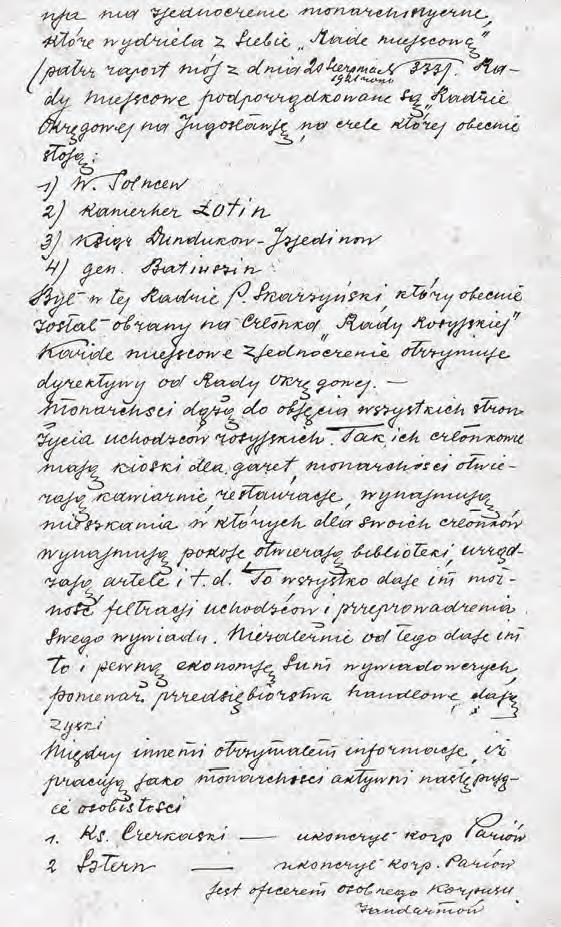 nja na zjednoczenie monarchistyczne,
które wydziela z siebie „Radę miejscową”
(patrz raport mój z dnia 20 Sierpnia 1921 roku 333). Ra-
dy miejscowe podporządkowane są „Radzie
Okręgowej na Jugosławję, na czele której obecnie
stoją:
1) W. Solncew
2) Kamerher Łotin
3) Książę Dundukow-Izjedinow
4) gen. Batiuszin
Był w tej Radzie P. Skarzyński, który obecnie
został obrany na członka „Rady Rosyjskiej”
Każde miejscowe zjednoczenie otrzymuje
dyrektywy od Rady Okręgowej. —
Monarchści dążą do objęcia wszystkich stron
życia uchodźców rosyjskich. Tak, ich członkowe
mają kioski dla gazet, monarchości otwie-
rają kawiarnie, restauracje, wynajmują
mieszkania w których dla swoich członków
wynajmują pokoje, otwierają bibljoteki, urząd-
zają artele i t.d. To wszystko daje im moż-
ność filtracji uchodźców i przeprowadzenia
swego wywiadu. Niezależnie od tego daje im
to i pewną ekonomję sum wywiadowczych,
ponieważ przedsiębiorstwa handlowe dają
zyski
Między innemi otrzymałem informacje, iż
pracują jako monarchości aktywni następują-
ce osobistości
1. Ks. Czerkaski — ukończył korp Paziów
2 Sztern — ukończył korp. Paziów
jest oficerem osobnego Korpusu
Żandarmów